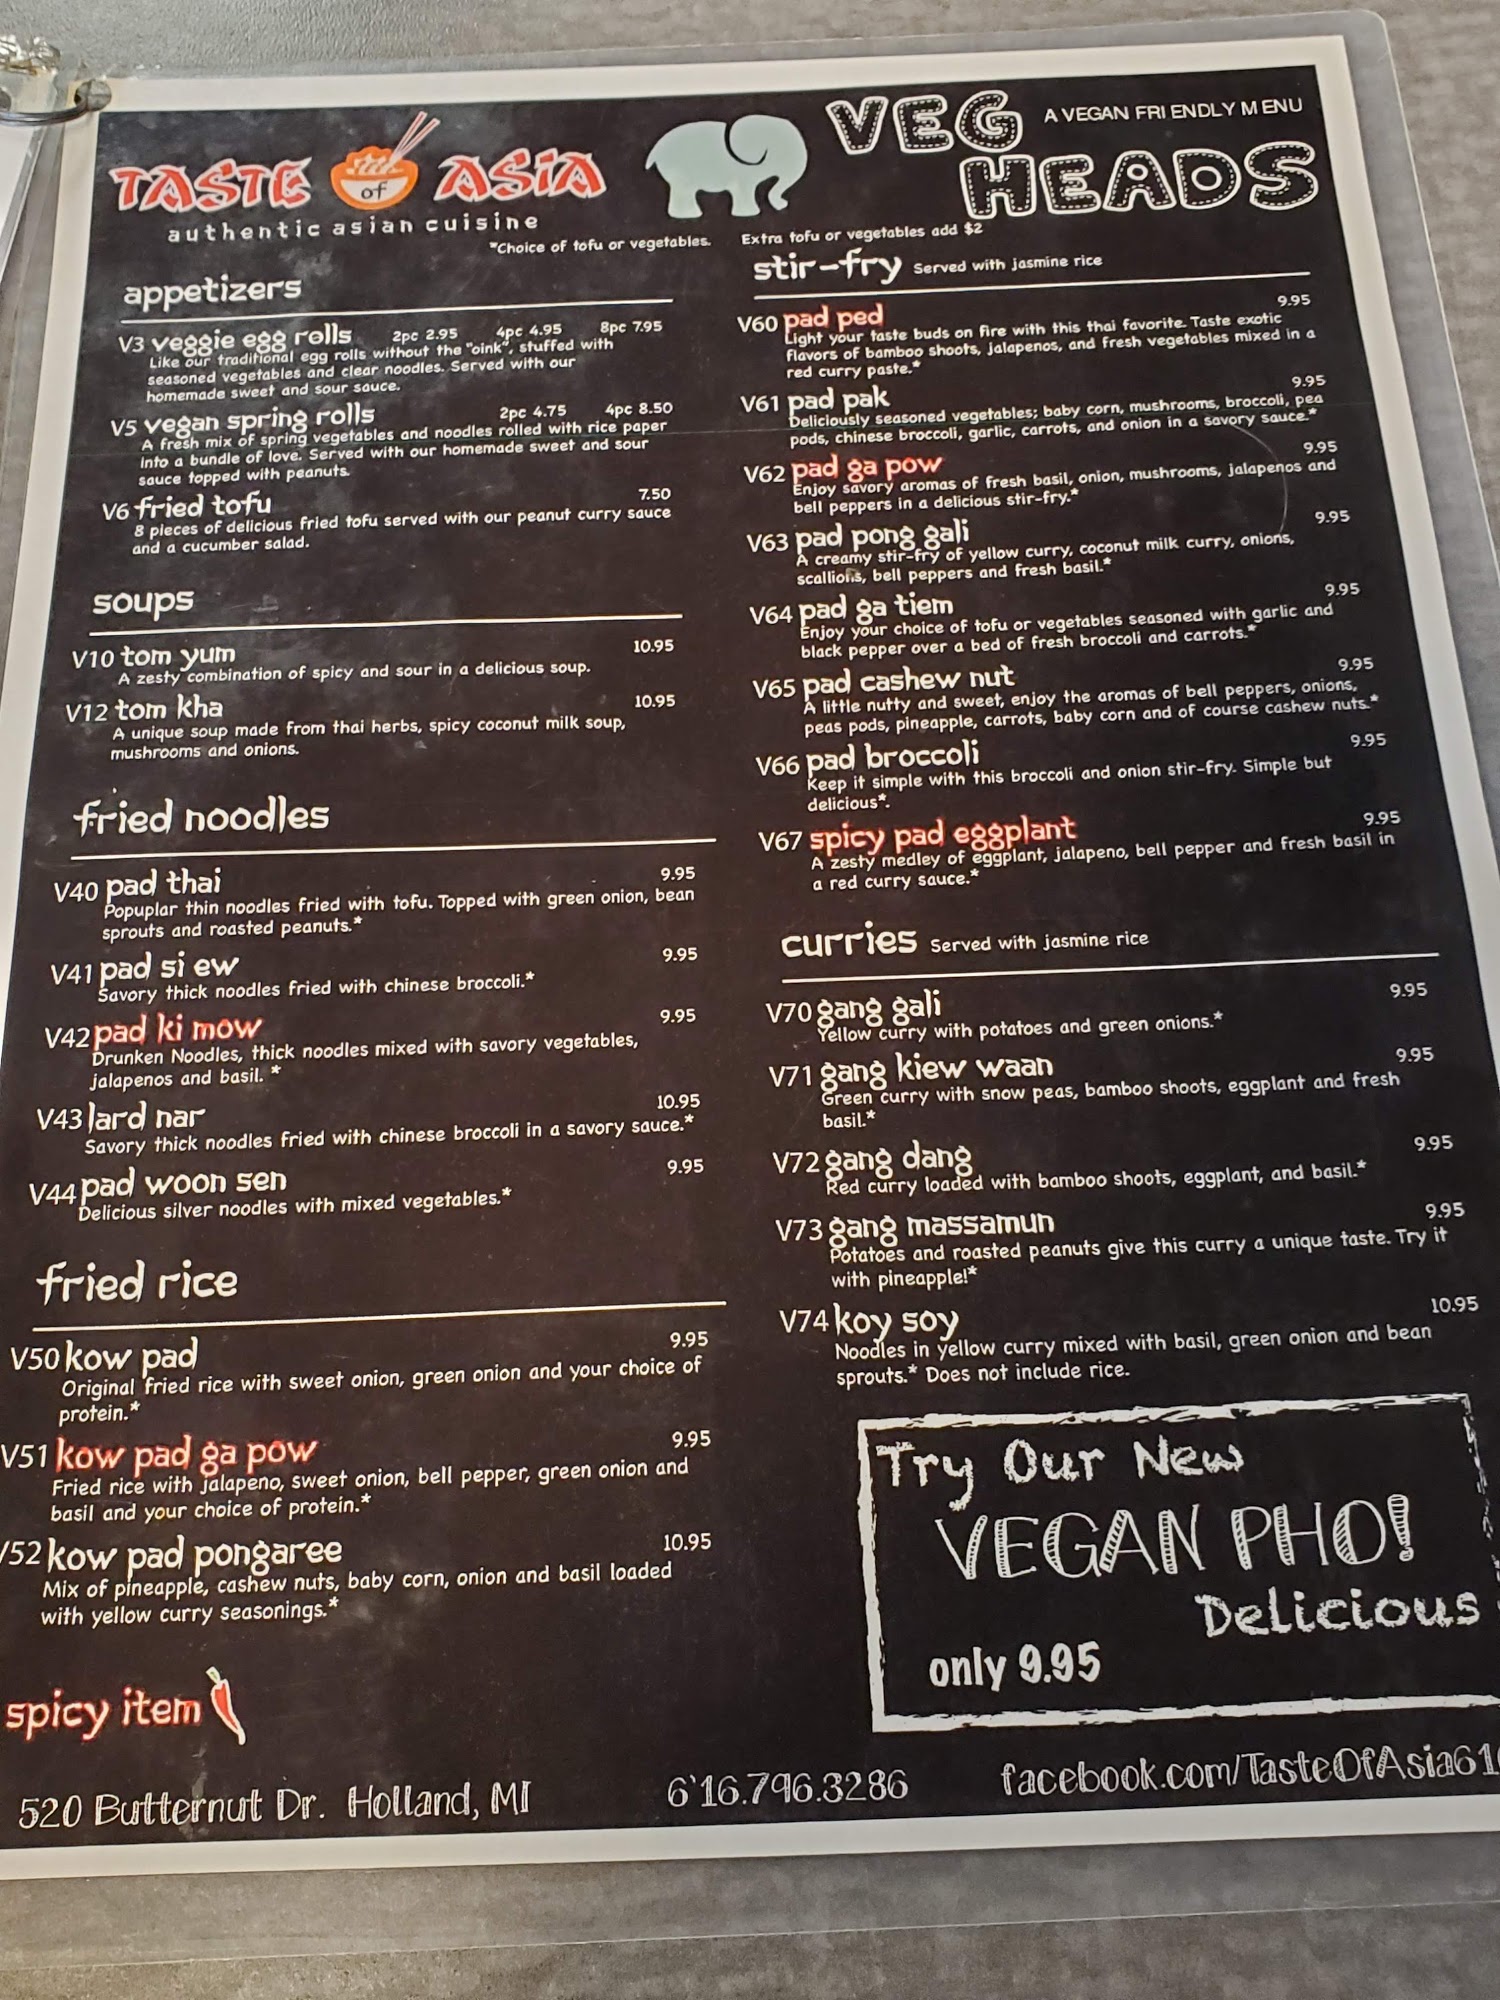 TASTE of ASIA
authentic asian cuisine
VEG HEADS
A VEGAN FRIENDLY MENU
*Choice of tofu or vegetables. Extra tofu or vegetables add $2
appetizers
V3 veggie egg rolls 2pc 2.95 4pc 4.95 8pc 7.95
Like our traditional egg rolls without the "oink", stuffed with
seasoned vegetables and clear noodles. Served with our
homemade sweet and sour sauce.
V5 vegan spring rolls 2pc 4.75 4pc 8.50
A fresh mix of spring vegetables and noodles rolled with rice paper
into a bundle of love. Served with our homemade sweet and sour
sauce topped with peanuts.
V6 fried tofu 7.50
8 pieces of delicious fried tofu served with our peanut curry sauce
and a cucumber salad.
soups
V10 tom yum 10.95
A zesty combination of spicy and sour in a delicious soup.
V12 tom kha 10.95
A unique soup made from thai herbs, spicy coconut milk soup,
mushrooms and onions.
fried noodles
V40 pad thai 9.95
Popuplar thin noodles fried with tofu. Topped with green onion, bean
sprouts and roasted peanuts.*
V41 pad si ew 9.95
Savory thick noodles fried with chinese broccoli.*
V42 pad ki mow 9.95
Drunken Noodles, thick noodles mixed with savory vegetables,
jalapenos and basil. *
V43 lard nar 10.95
Savory thick noodles fried with chinese broccoli in a savory sauce.*
V44 pad woon sen 9.95
Delicious silver noodles with mixed vegetables.*
fried rice
V50 kow pad 9.95
Original fried rice with sweet onion, green onion and your choice of
protein.*
V51 kow pad ga pow 9.95
Fried rice with jalapeno, sweet onion, bell pepper, green onion and
basil and your choice of protein.*
V52 kow pad pongaree 10.95
Mix of pineapple, cashew nuts, baby corn, onion and basil loaded
with yellow curry seasonings.*
spicy item
stir-fry Served with jasmine rice
V60 pad ped 9.95
Light your taste buds on fire with this thai favorite. Taste exotic
flavors of bamboo shoots, jalapenos, and fresh vegetables mixed in a
red curry paste.*
V61 pad pak 9.95
Deliciously seasoned vegetables; baby corn, mushrooms, broccoli, pea
pods, chinese broccoli, garlic, carrots, and onion in a savory sauce.*
V62 pad ga pow 9.95
Enjoy savory aromas of fresh basil, onion, mushrooms, jalapenos and
bell peppers in a delicious stir-fry.*
V63 pad pong gali 9.95
A creamy stir-fry of yellow curry, coconut milk curry, onions,
scallions, bell peppers and fresh basil.*
V64 pad ga tiem 9.95
Enjoy your choice of tofu or vegetables seasoned with garlic and
black pepper over a bed of fresh broccoli and carrots.*
V65 pad cashew nut 9.95
A little nutty and sweet, enjoy the aromas of bell peppers, onions,
peas pods, pineapple, carrots, baby corn and of course cashew nuts.*
V66 pad broccoli 9.95
Keep it simple with this broccoli and onion stir-fry. Simple but
delicious*.
V67 spicy pad eggplant 9.95
A zesty medley of eggplant, jalapeno, bell pepper and fresh basil in
a red curry sauce.*
curries Served with jasmine rice
V70 gang gali 9.95
Yellow curry with potatoes and green onions.*
V71 gang kiew waan 9.95
Green curry with snow peas, bamboo shoots, eggplant and fresh
basil.*
V72 gang dang 9.95
Red curry loaded with bamboo shoots, eggplant, and basil.*
V73 gang massamun 9.95
Potatoes and roasted peanuts give this curry a unique taste. Try it
with pineapple!*
V74 koy soy 10.95
Noodles in yellow curry mixed with basil, green onion and bean
sprouts.* Does not include rice.
Try Our New
VEGAN PHO!
Delicious
only 9.95
520 Butternut Dr. Holland, MI 6'16.796.3286 facebook.com/TasteOfAsia61